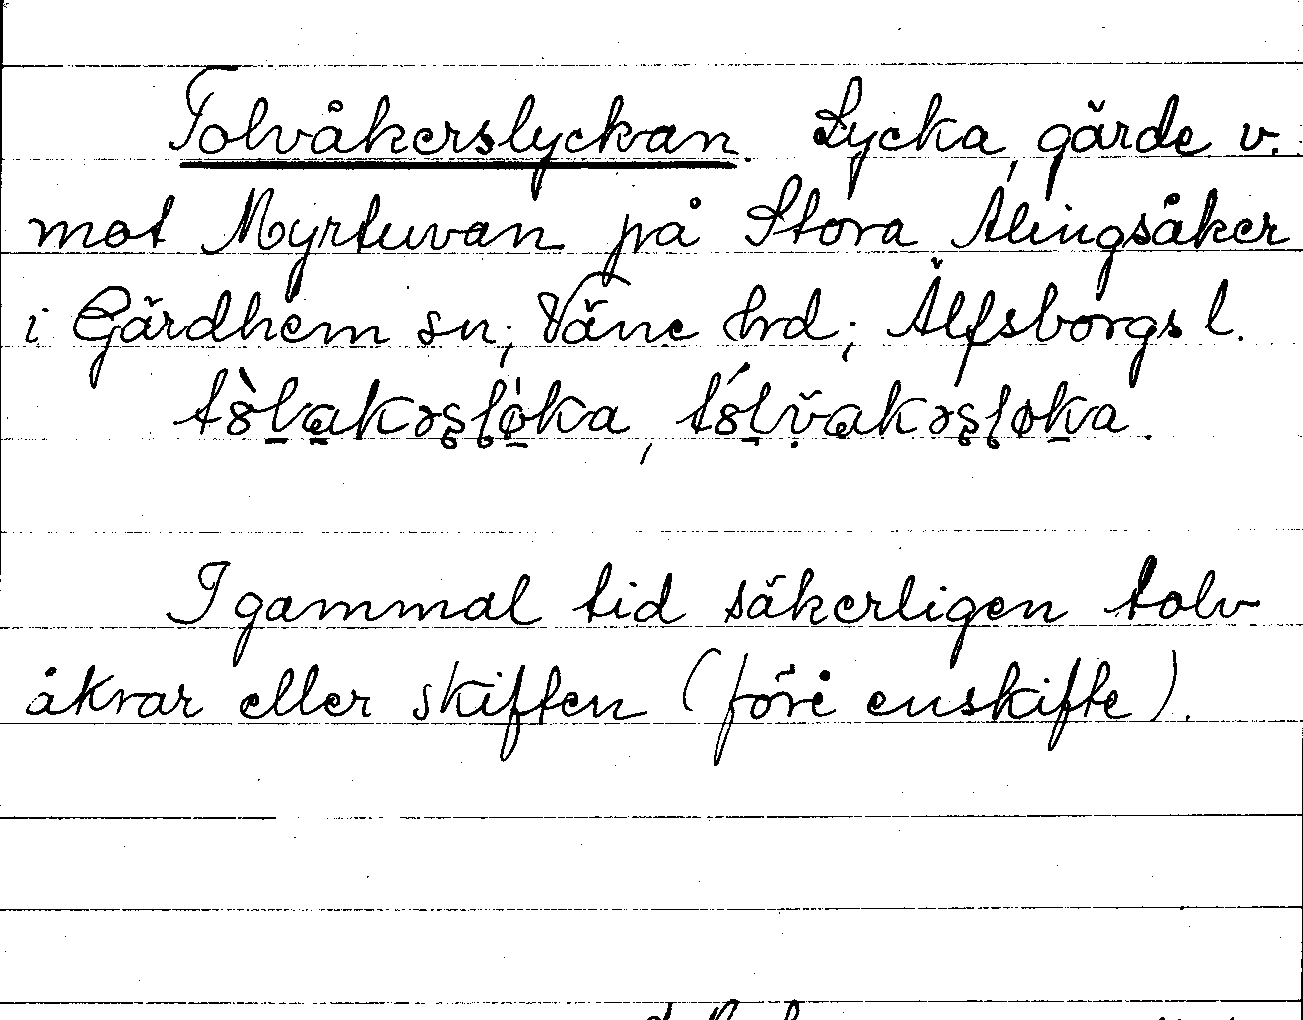 Tolvåkerslyckan. Lycka, gärde v.
mot Myrtuvan på Stora Alingsåker
i Gärdhem sn, Väne hrd, Älfsborgs l.
I gammal tid säkerligen tolv
åkrar eller skiften (före enskifte).